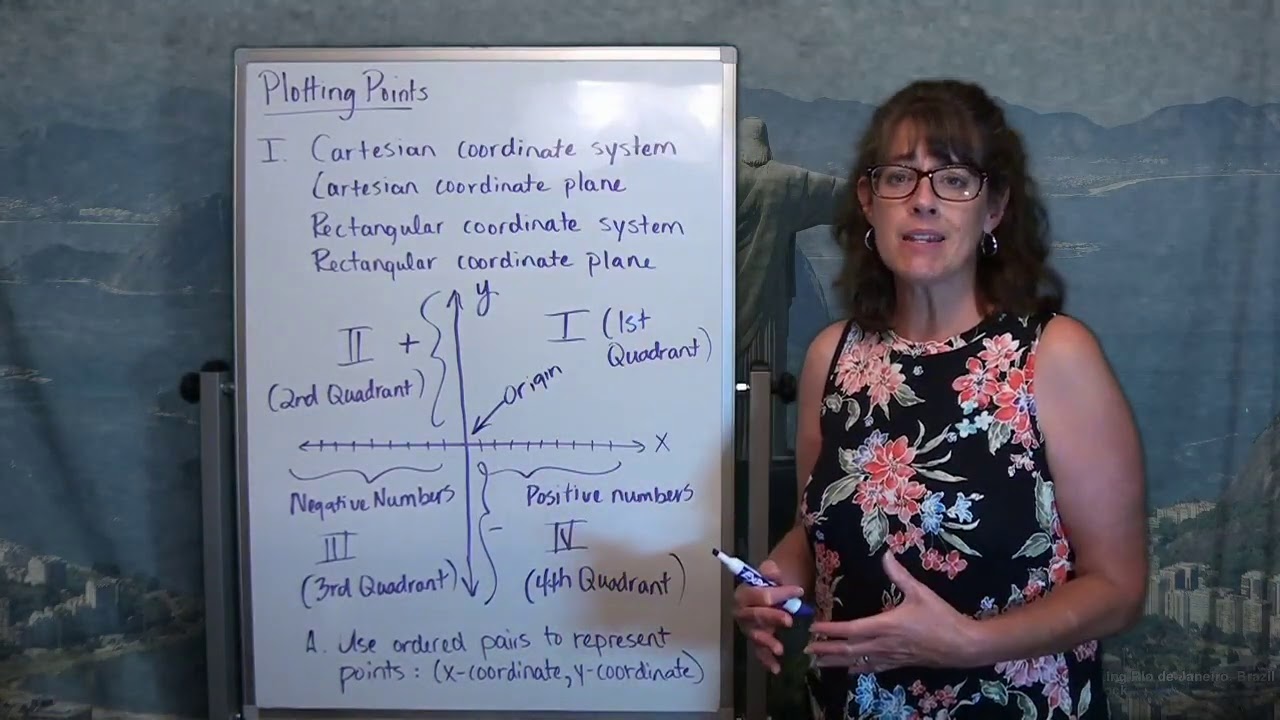 Plotting Points
I. Cartesian coordinate system
Cartesian coordinate plane
Rectangular coordinate system
Rectangular coordinate plane
y
II +
(2nd Quadrant)
I (1st
Quadrant)
Origin
x
Negative Numbers
Positive numbers
-
III
(3rd Quadrant)
IV
(4th Quadrant)
A. Use ordered pairs to represent
points : (x-coordinate, y-coordinate)
Rio de Janeiro, Brazil